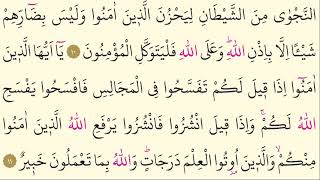 النَّجْوٰى مِنَ الشَّيْطَانِ لِيَحْزُنَ الَّذِينَ اٰمَنُوا وَلَيْسَ بِضَٓارِّهِمْ
شَيْـًٔا اِلَّا بِاِذْنِ اللّٰهِۜ وَعَلَى اللّٰهِ فَلْيَتَوَكَّلِ الْمُؤْمِنُونَ ﴿١٠﴾ يَٓا اَيُّهَا الَّذِينَ
اٰمَنُٓوا اِذَا قِيلَ لَكُمْ تَفَسَّحُوا فِي الْمَجَالِسِ فَافْسَحُوا يَفْسَحِ
اللّٰهُ لَكُمْۚ وَاِذَا قِيلَ انْشُزُوا فَانْشُزُوا يَرْفَعِ اللّٰهُ الَّذِينَ اٰمَنُوا
مِنْكُمْۙ وَالَّذِينَ اُو۫تُوا الْعِلْمَ دَرَجَاتٍۜ وَاللّٰهُ بِمَا تَعْمَلُونَ خَبِيرٌ ﴿١١﴾